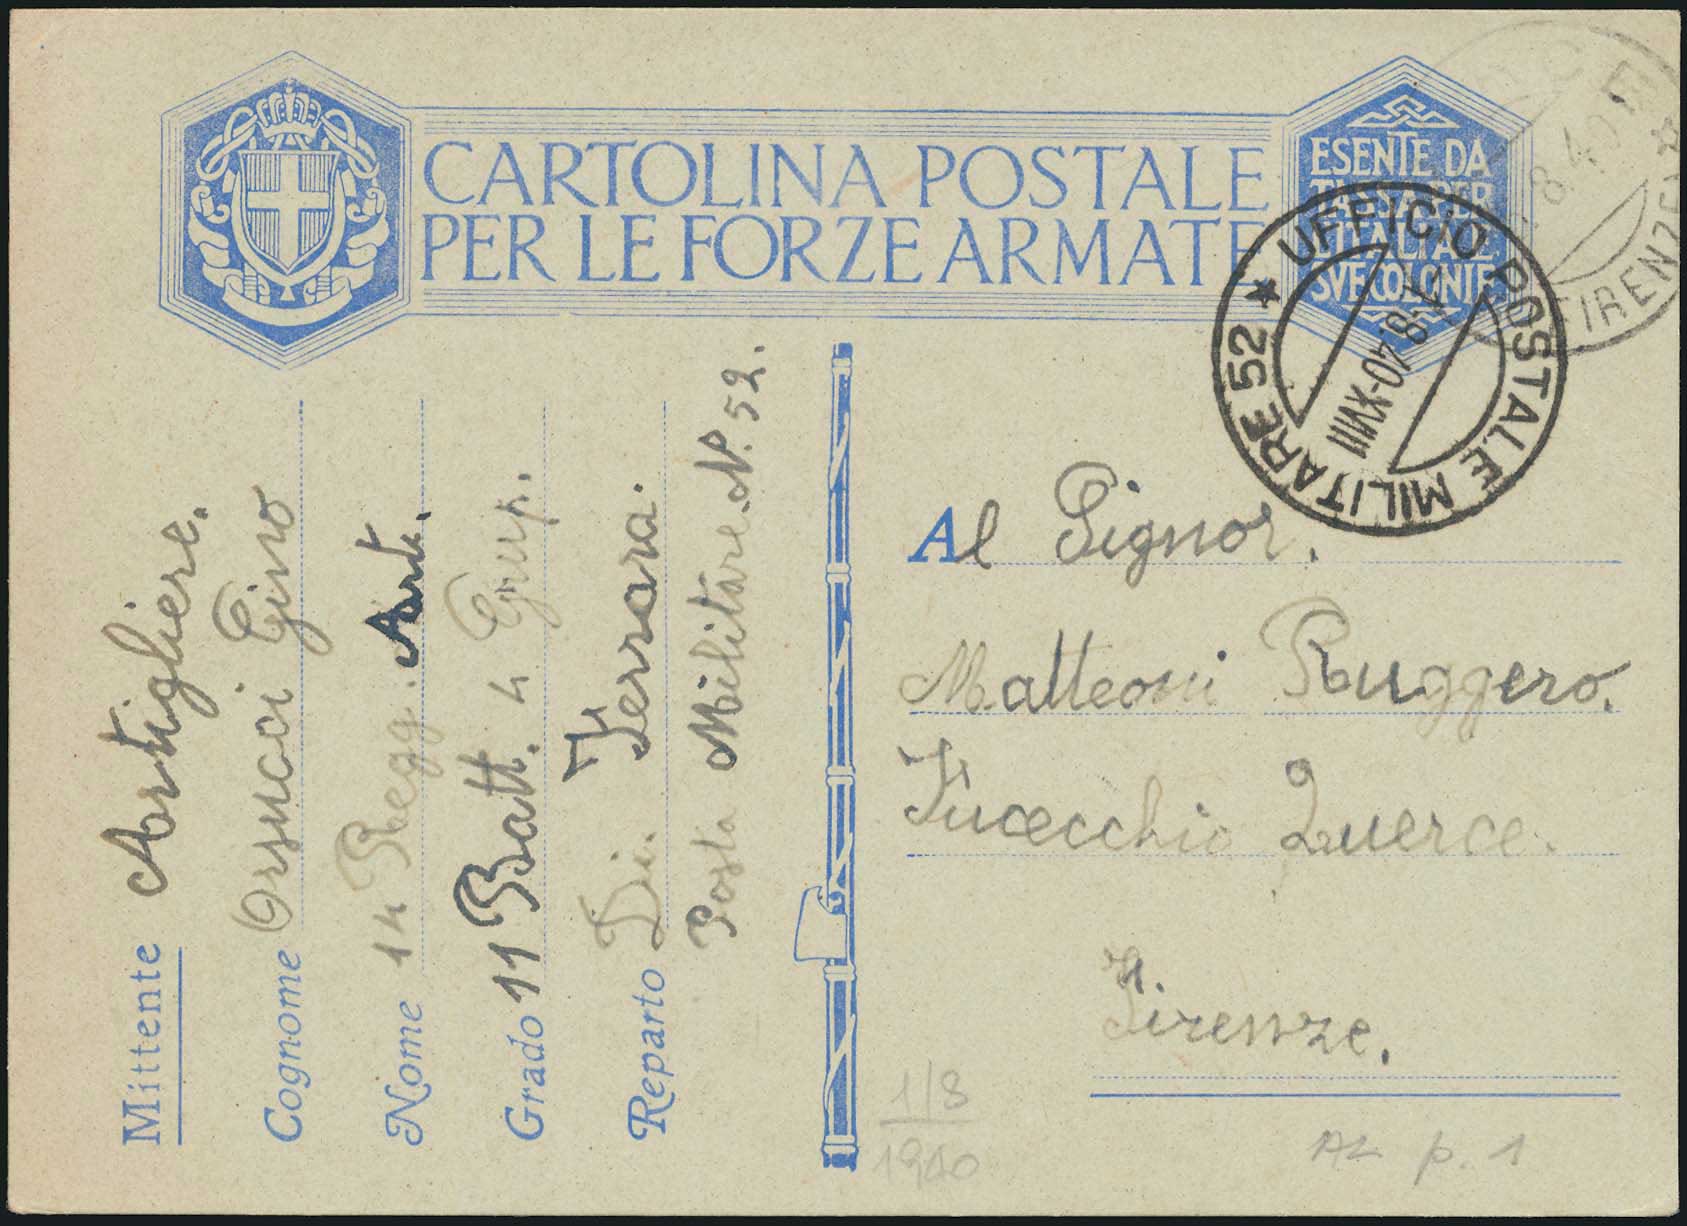 CARTOLINA POSTALE
PER LE FORZE ARMATE
ESENTE DA
TASSA PER
L'ITALIA E
SUE COLONIE
FIRENZE
8.40
UFFICIO POSTALE MILITARE 52
1.8.40-XVIII
Mittente Artigliere.
Cognome Orsucci Gino
Nome 14 Regg. Arti.
Grado 11 Batt. 4 Grup.
Reparto Di. Ferrara.
Posta Militare N. 52.
Al Signor.
Matteoni Ruggero.
Fucecchio Querce.
Firenze.
1/8
1940
p. 1